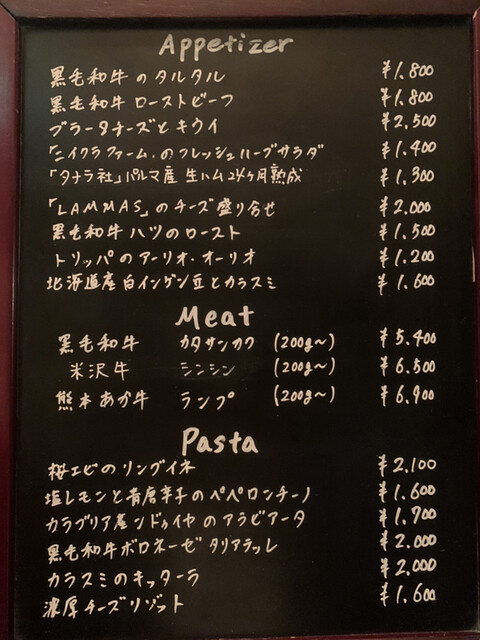 Appetizer
黒毛和牛のタルタル ¥1.800
黒毛和牛ローストビーフ ¥1.800
ブラータチーズとキウイ ¥2,500
「ニイクラファーム」のフレッシュハーブサラダ ¥1.400
「タナラ社」パルマ産 生ハム24ヶ月熟成 ¥1.300
「LAMMAS」のチーズ盛り合せ ¥2.000
黒毛和牛ハツのロースト ¥1.500
トリッパのアーリオ・オーリオ ¥1.200
北海道産白インゲン豆とカラスミ ¥1.600
Meat
黒毛和牛 カタサンカク (200g〜) ¥5.400
米沢牛 シンシン (200g〜) ¥6.500
熊本あか牛 ランプ (200g〜) ¥6.900
Pasta
桜エビのリングイネ ¥2,100
塩レモンと青唐辛子のペペロンチーノ ¥1.600
カラブリア産ンドゥイヤのアラビアータ ¥1.700
黒毛和牛ボロネーゼ タリアテッレ ¥2.000
カラスミのキッターラ ¥2.000
濃厚チーズリゾット ¥1.600